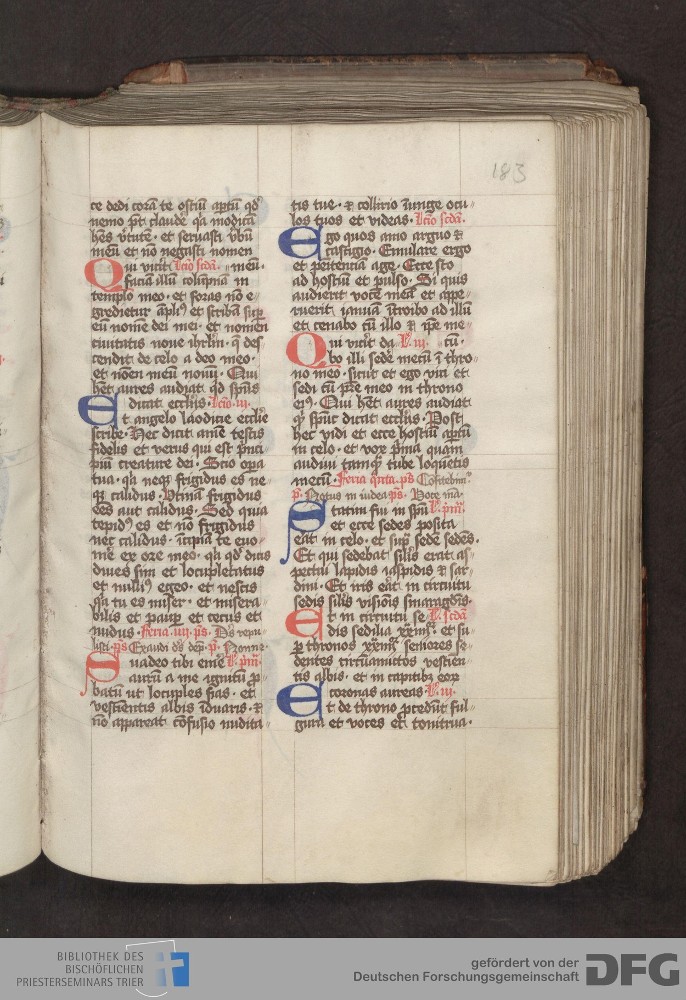 183
ce dedi corā te ostiū aptū qd̄
nemo pt̄ claudē qa modicā
hēs v̄tutē · et seruasti v̄bū
meū et nō negasti nomen
Qui vicit l̄cio scd̄a · meū ·
faciā illū colūpnā in
templo meo · et foras nō e-
gredietur āpliꝰ et scribā sup
eū nomē dei mei · et nomen
ciuitatis noue ihrlm̄ · q̄ des
cendit de celo a deo meo ·
et nōen meū nouū · Qui
het aures audiat qd̄ spūs
dicat ecclīis · l̄cio · iii ·
Et angelo laodicie ecclīe
scribe · Hec dicit amē testis
fidelis et verus qui est p̄nci
piū creature dei · Scio opa
tua · qa neqꝫ frigidus es ne
qꝫ calidus · Utinā frigidus
eēs aut calidus · Sed quia
tepidꝰ es et nō frigidus
nec calidus · īcipiā te euo-
mē ex ore meo · qa qd̄ dicis
diues sum et locupletatus
et nulliꝰ egeo · et nescis
qa tu es miser · et misera-
bilis et paup et cecus et
nudus · Feria · iiii · ps̄ · Ds̄ repu
listi · ps̄ Exaudi ds̄ dep̄ · p̄ · Nonne
Suadeo tibi emē l̄ · pm̄ ·
aurū a me ignitū p̄-
batū ut locuples fias · et
vestimentis albis īduaris · ⁊
nō appareat cōfusio nudita-
tis tue · ⁊ collirio īunge ocu-
los tuos et videas · l̄cio scd̄a ·
Ego quos amo arguo ⁊
castigo · Emulare ergo
et penitenciā age · Ecce sto
ad hostiū et pulso · Si quis
audierit vocē meā et appe-
ruerit ianuā ītroibo ad illū
et cenabo cū illo ⁊ ipē me-
Qui vicit da l̄ · iii · cū ·
bo illi sedē mecū ī thro-
no meo · sicut et ego vici et
sedi cū pr̄e meo in throno
eiꝰ · Qui het aures audiat
qd̄ spūc dicat ecclīis · Post
hec vidi et ecce hostiū aptū
in celo · et vox p̄ma quam
audiui tamqꝫ tube loquētis
mecū · Feria qīnta · ps̄ Cōfitebim̄
p̄ · Notus in iudea ps̄ · Voce mā ·
Statim fui in spū l̄ · pm̄ ·
et ecce sedes posita
erat in celo · et sup sedē sedēs ·
Et qui sedebat silīs erat as-
pectui lapidis iaspidis ⁊ sar-
dini · Et iris erat in circuitu
sedis silīs visionis smaragdīs ·
Et in circuitu se l̄ · scd̄a
dis sedilia xxiiii · et su
p thronos xxiiii seniores se-
dentes circūamictos vestīen-
tis albis · et in capitibꝫ eoꝝ
coronas aureas · l̄ · iii ·
Et de throno p̄cedūt ful-
gura et voces et tonitrua ·
BIBLIOTHEK DES
BISCHÖFLICHEN
PRIESTERSEMINARS TRIER
gefördert von der
Deutschen Forschungsgemeinschaft
DFG